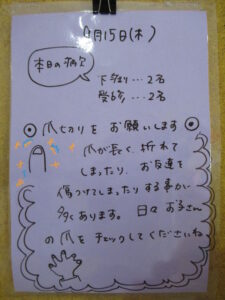 月15日(木)
本日の病欠
下痢…2名
受診…2名
爪切りをお願いします
爪が長く、折れて
しまったり、お友達を
傷つけてしまったりする事が
多くあります。日々お子さん
の爪をチェックしてくださいね